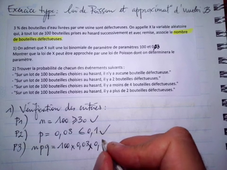 Exercice type : loi de Poisson et approximat° d'une loi B
3 % des bouteilles d'eau fabriquées par une usine sont défectueuses. On appelle X la variable aléatoire
qui, à tout lot de 100 bouteilles prises au hasard successivement et avec remise, associe le nombre
de bouteilles défectueuses.
1) On admet que X suit une loi binomiale de paramètres 100 et 0,03
Montrer que la loi de X peut être approchée par une loi de Poisson dont on déterminera le
paramètre.
2) Trouver la probabilité de chacun des événements suivants :
"Sur un lot de 100 bouteilles choisies au hasard, il n'y a aucune bouteille défectueuse."
"Sur un lot de 100 bouteilles choisies au hasard, il y a 2 bouteilles défectueuses."
"Sur un lot de 100 bouteilles choisies au hasard, il y a moins de 4 bouteilles défectueuses."
"Sur un lot de 100 bouteilles choisies au hasard, il y a plus de 2 bouteilles défectueuses."
1) Vérification des critères :
P1) n = 100 ≥ 30 ✓
P2) p = 0,03 ≤ 0,1 ✓
P3) npq = 100 x 0,03 x 0,